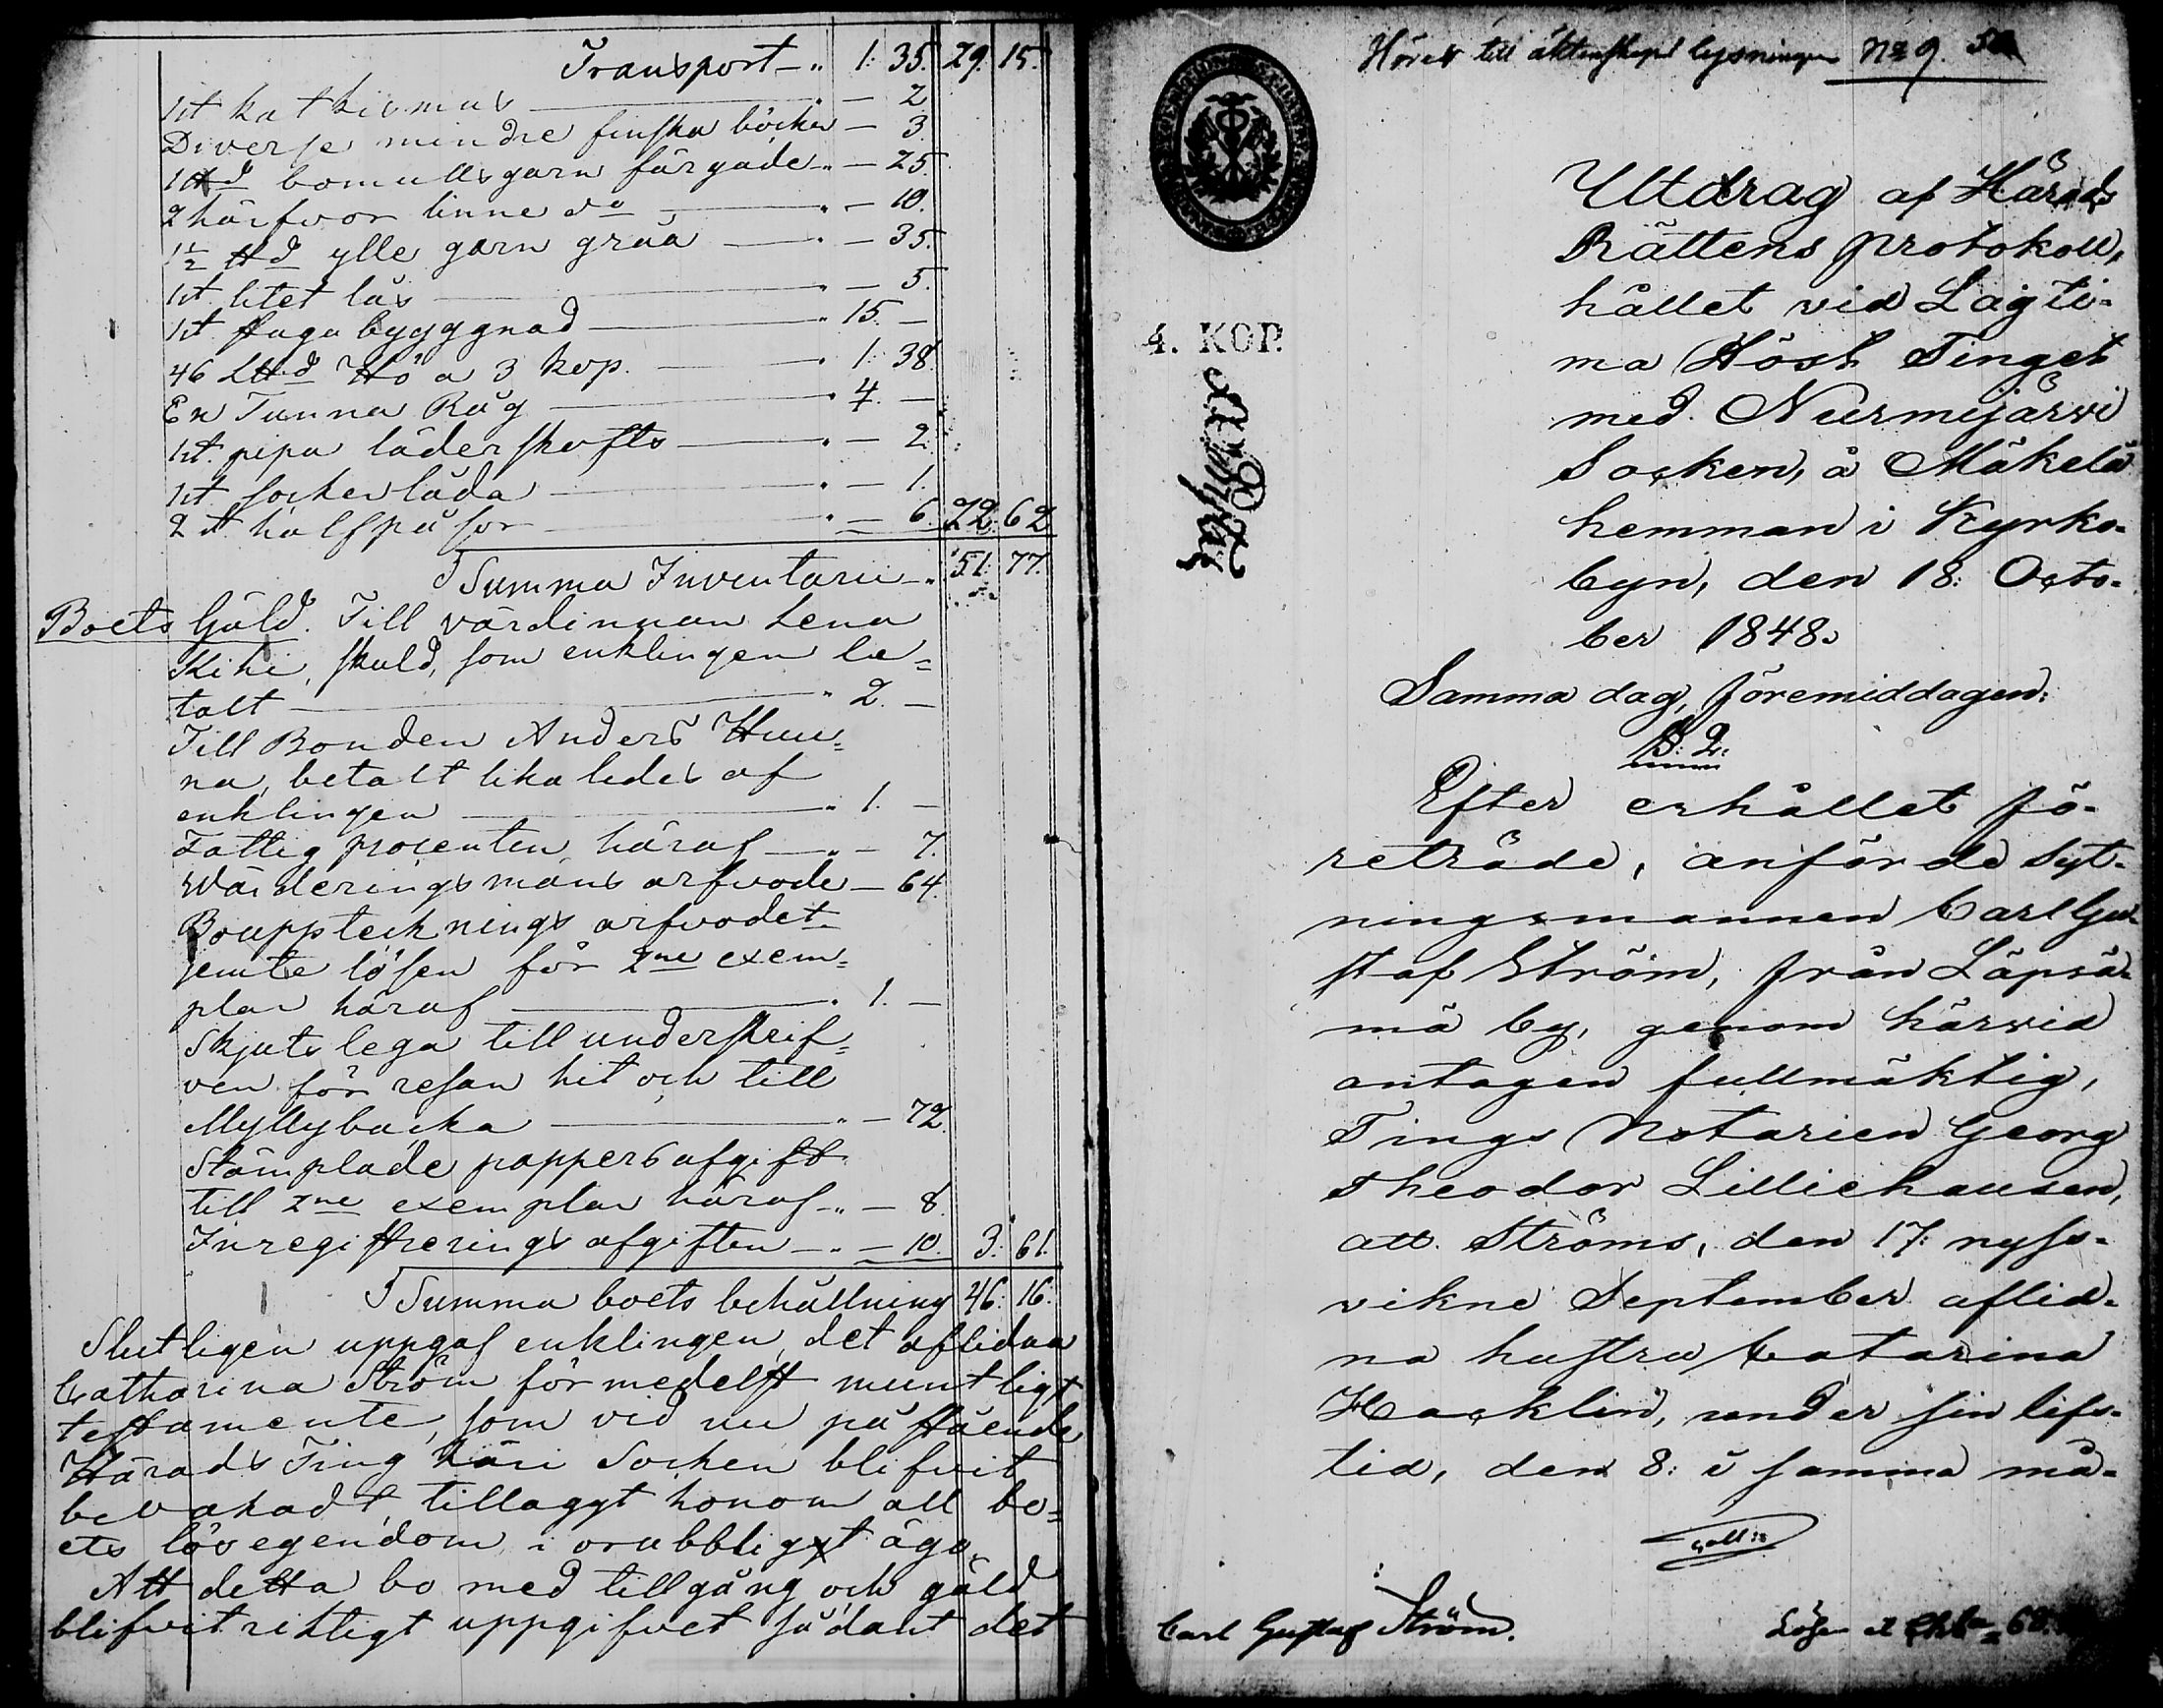 Transport — " 1: 35. 29. 15.
1 st katkismus — " — 2
Diverse mindre finska böcker — 3.
1 ℔d bomullsgarn färgade " — 25.
2 härfvor linne do — " — 10.
1½ ℔d ylle garn gråa — " — 35.
1 st litet lås — " — 5.
1 st stuga byggnad — " 15. —
46 L℔d Hö a 3 kop. — " 1: 38.
En Tunna Råg — " 4. —
1 st. pipa läderskafts — " — 2.
1 st sockerlåda — " — 1.
2 st halfpåsor — " — 6. 22. 62
Summa Inventarii " 51: 77.
Boets Gäld. Till värdinnan Lena
Kihi, skuld, som enklingen be=
talt — " 2. —
Till Bonden Anders Huu=
na, betalt lika ledes af
enklingen — " 1. —
Fattig procenten häraf — " — 7.
Wärderingsmans arfvode — 64.
Boupptecknings arfvodet
jemte lösen för 2ne exem=
plar häraf — " 1. —
Skjuts lega till underskrif=
ven för resan hit och till
Myllybacka — " — 72.
Stämplade pappers afgift
till 2ne exemplar häraf " — 8.
Inregistrerings afgiften — " — 10. 3: 61.
Summa boets behållning 46: 16.
Slutligen uppgaf enklingen, det aflidna
Catharina Ström förmedelst muntligt
testamente, som vid nu påstående
Härads Ting häri Socken blifvit
bevakadt, tillaggt honom all bo=
ets lösegendom i orubbligt ägo.
Att detta bo med tillgång och gäld
blifvit riktigt uppgifvet sådant det
Hörer till äktenskaps lysningen No 9.
4. KOP.
Utdrag af Härads
Rättens protokoll,
hållet vid Lagti-
ma Höst Tinget
med Nurmijärvi
Socken, å Mäkelä
hemman i Kyrko-
byn, den 18: Octo-
ber 1848.
Samma dag, förmiddagen:
§: 2:
Efter erhållet fö-
reträde, anförde Syt-
ningsmannen Carl Gu-
staf Ström, från Läpsä-
mä by, genom härvid
antagen fullmäktig,
Tings Notarien Georg
Theodor Lilliehausen,
att Ströms, den 17: nyss-
vikne September aflid-
na hustru Catarina
Hacklin, under sin lifs-
tid, den 8: i samma må-
Carl Gustaf Ström.
Lösen